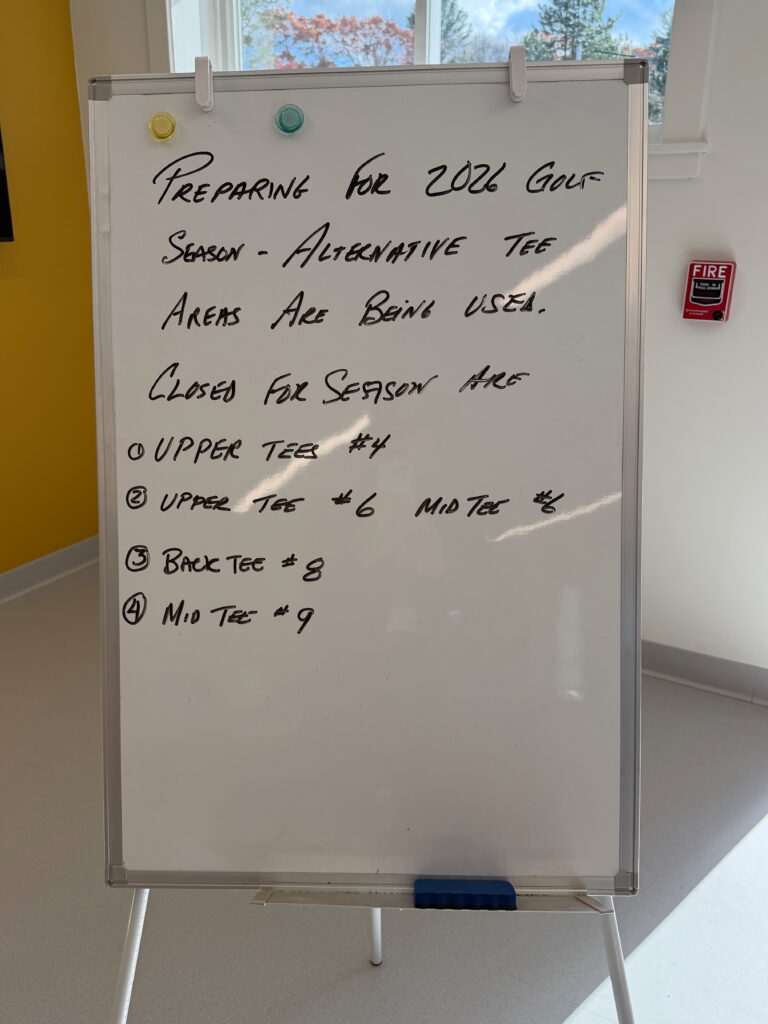 PREPARING FOR 2026 GOLF
SEASON - ALTERNATIVE TEE
AREAS ARE BEING USED.
CLOSED FOR SEASON ARE
① UPPER TEES #4
② UPPER TEE #6 MID TEE #6
③ BACK TEE #8
④ MID TEE #9
FIRE